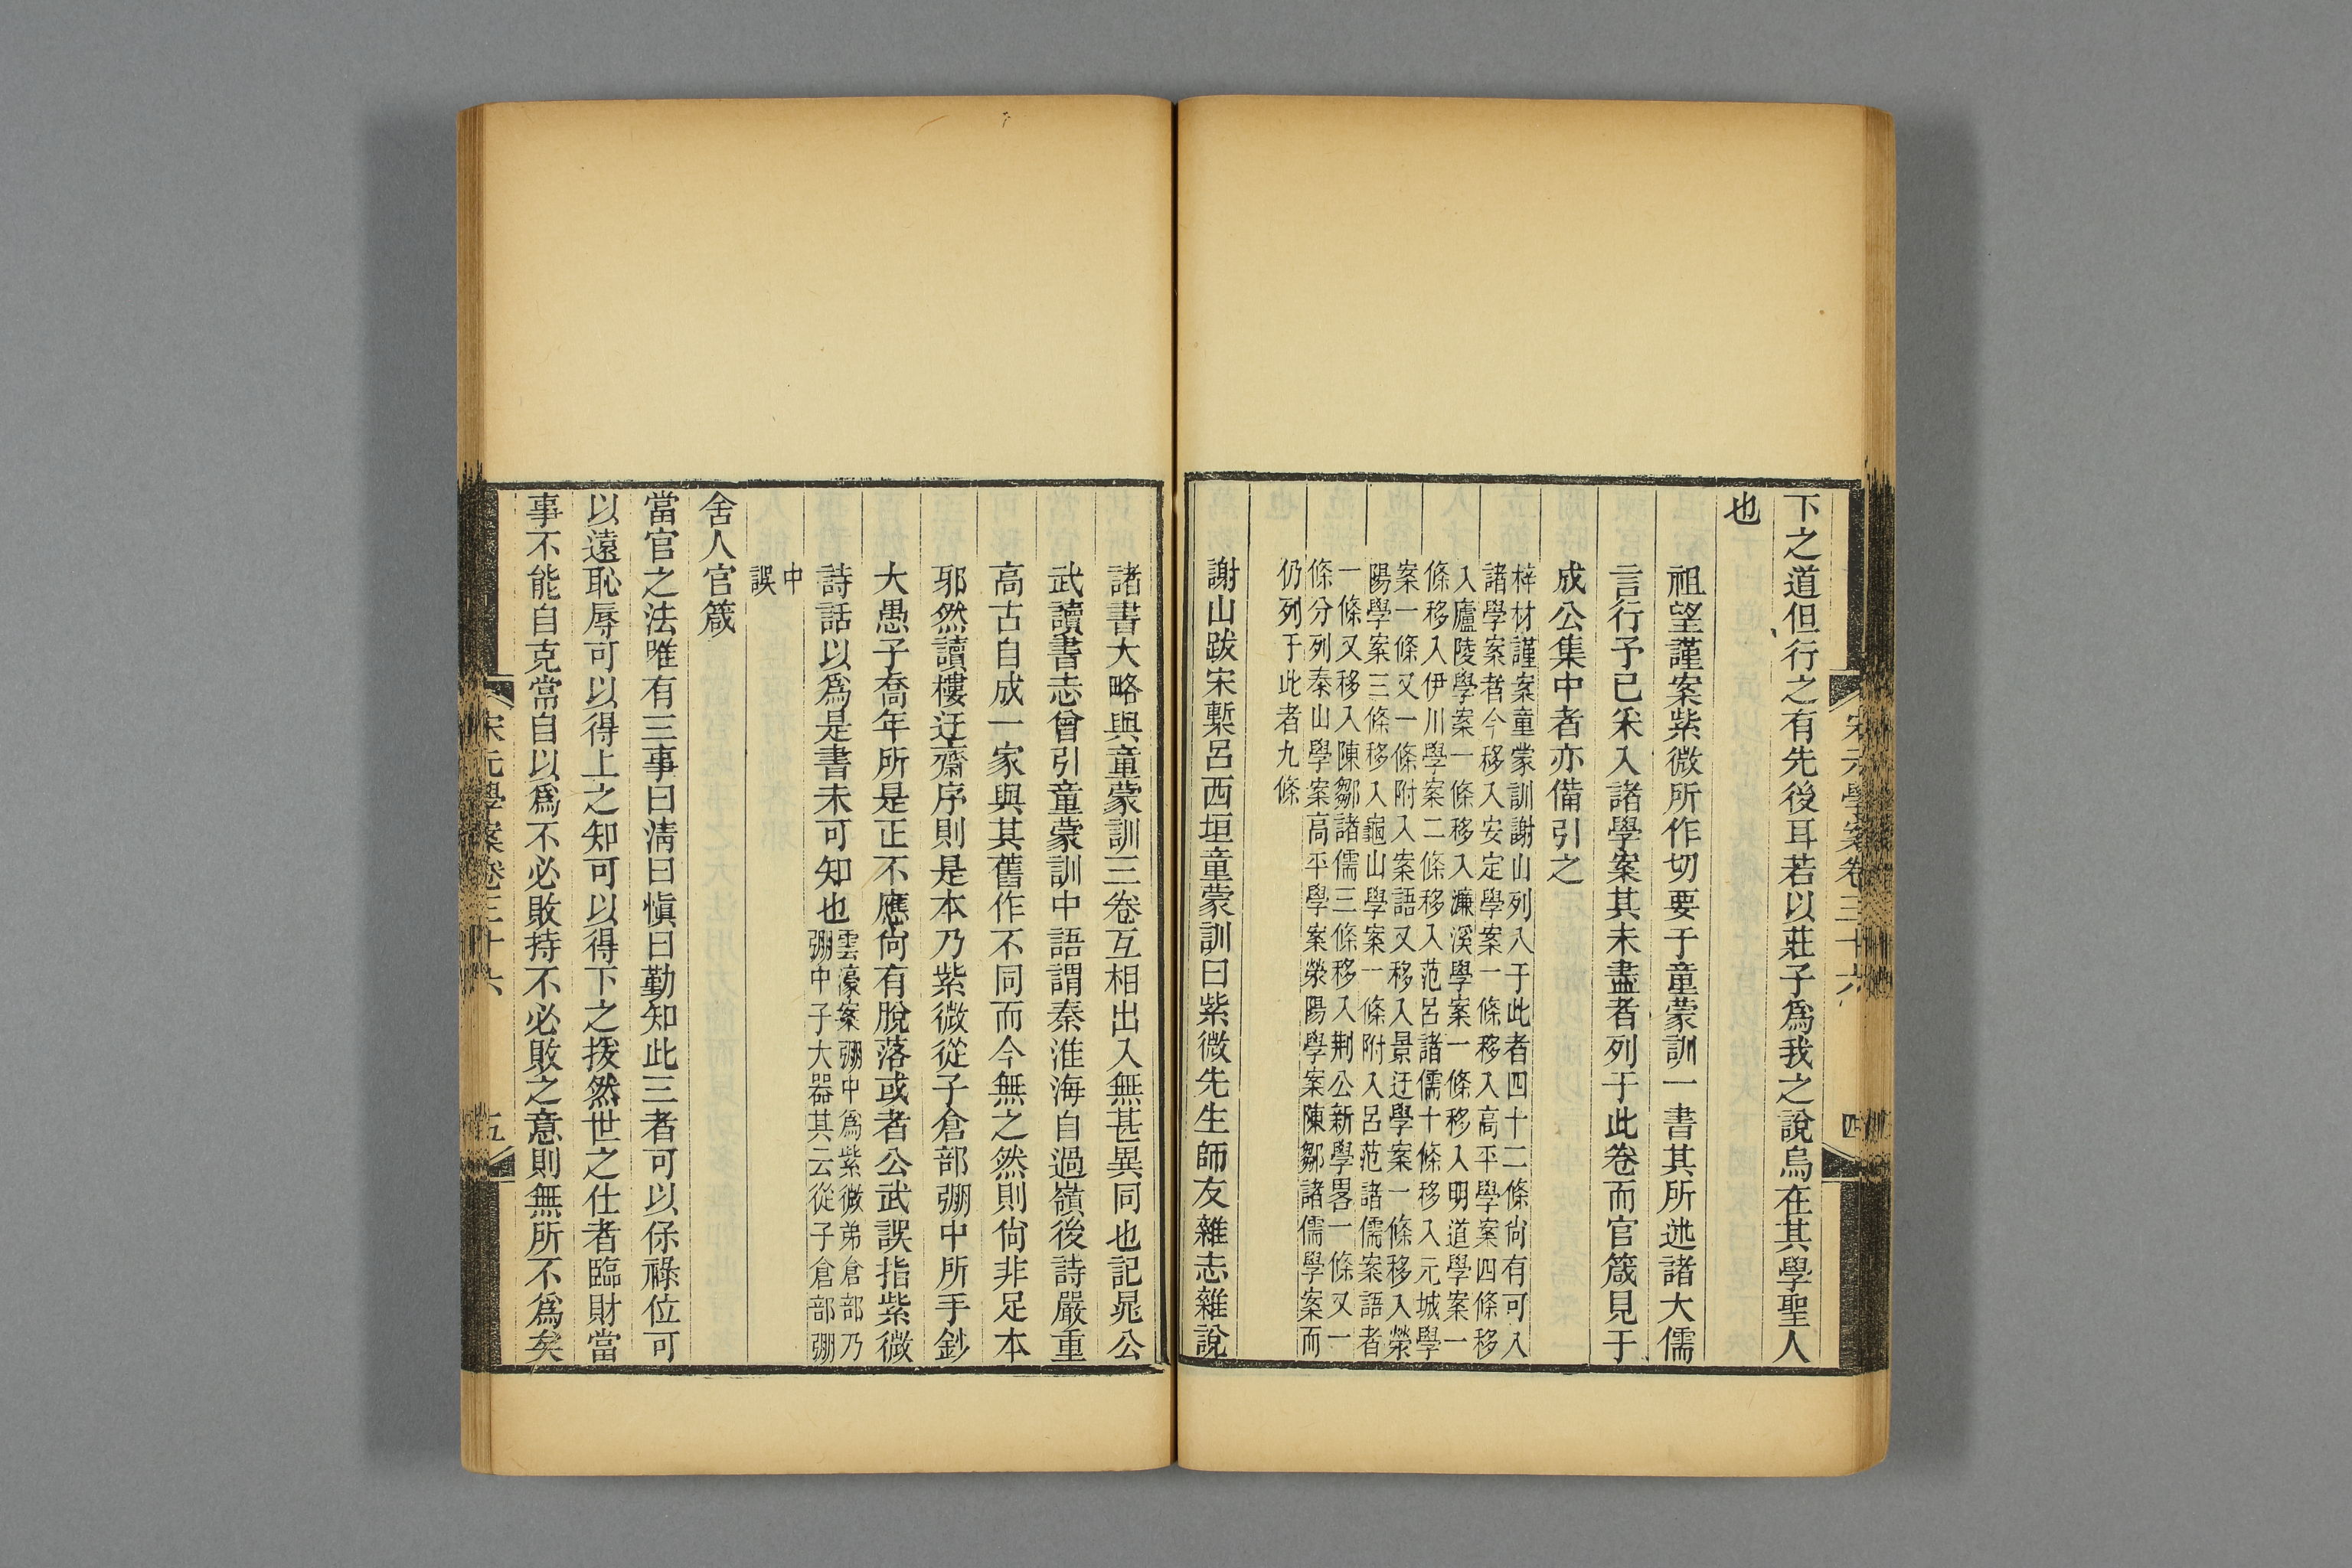 宋元學案卷三十六
四
下之道但行之有先後耳若以莊子爲我之說烏在其學聖人
也
祖望謹案紫微所作切要于童蒙訓一書其所述諸大儒
言行予已采入諸學案其未盡者列于此卷而官箴見于
成公集中者亦備引之
梓材謹案童蒙訓謝山列入于此者四十二條尙有可入
諸學案者今移入安定學案一條移入高平學案四條移
入廬陵學案一條移入濂溪學案一條移入明道學案一
條移入伊川學案二條移入范呂諸儒十條移入元城學
案一條又一條附入案語又移入景迂學案一條移入滎
陽學案三條移入龜山學案一條附入呂范諸儒案語者
一條又移入陳鄒諸儒三條移入荆公新學畧一條又一
條分列泰山學案高平學案滎陽學案陳鄒諸儒學案而
仍列于此者九條
謝山跋宋槧呂西垣童蒙訓曰紫微先生師友雜志雜說
諸書大略與童蒙訓三卷互相出入無甚異同也記晁公
武讀書志曾引童蒙訓中語謂秦淮海自過嶺後詩嚴重
高古自成一家與其舊作不同而今無之然則尙非足本
邪然讀樓迂齋序則是本乃紫微從子倉部弸中所手鈔
大愚子喬年所是正不應尙有脫落或者公武誤指紫微
詩話以爲是書未可知也
雲濠案弸中爲紫微弟倉部乃
弸中子大器其云從子倉部弸
中
誤
舍人官箴
當官之法唯有三事曰淸曰愼曰勤知此三者可以保祿位可
以遠恥辱可以得上之知可以得下之援然世之仕者臨財當
事不能自克常自以爲不必敗持不必敗之意則無所不爲矣
宋元學案卷三十六
五